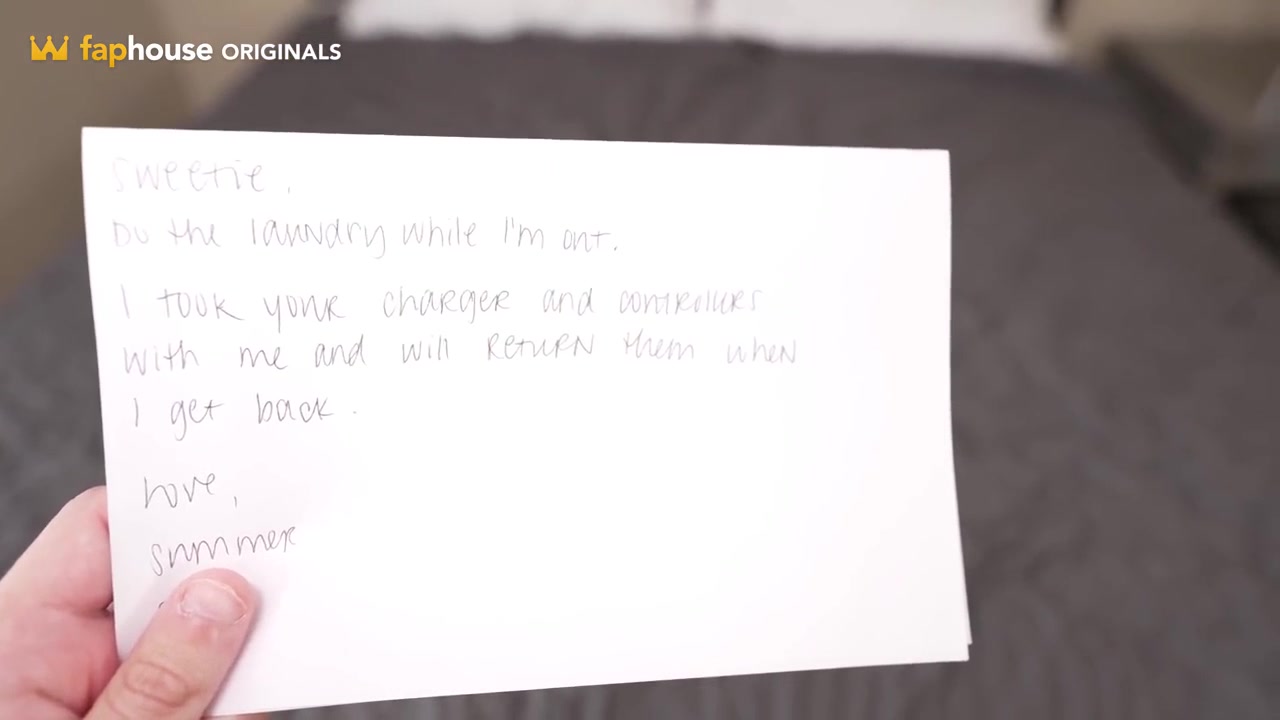 faphouse ORIGINALS
sweetie,
Do the laundry while I'm out.
I took your charger and controllers
with me and will return them when
I get back.
Love,
summer